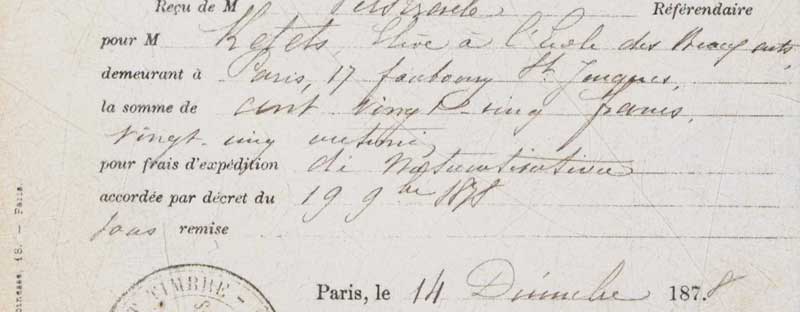 Reçu de M Référendaire
pour M Kefets, Elève à l'Ecole des Beaux arts,
demeurant à Paris, 17 faubourg St Jacques,
la somme de cent vingt-cinq francs,
vingt-cinq centimes
pour frais d'expédition de Naturalisation
accordée par décret du 19 9bre 1878
sous remise
Paris, le 14 Décembre 1878
TIMBRE
18. — Paris.